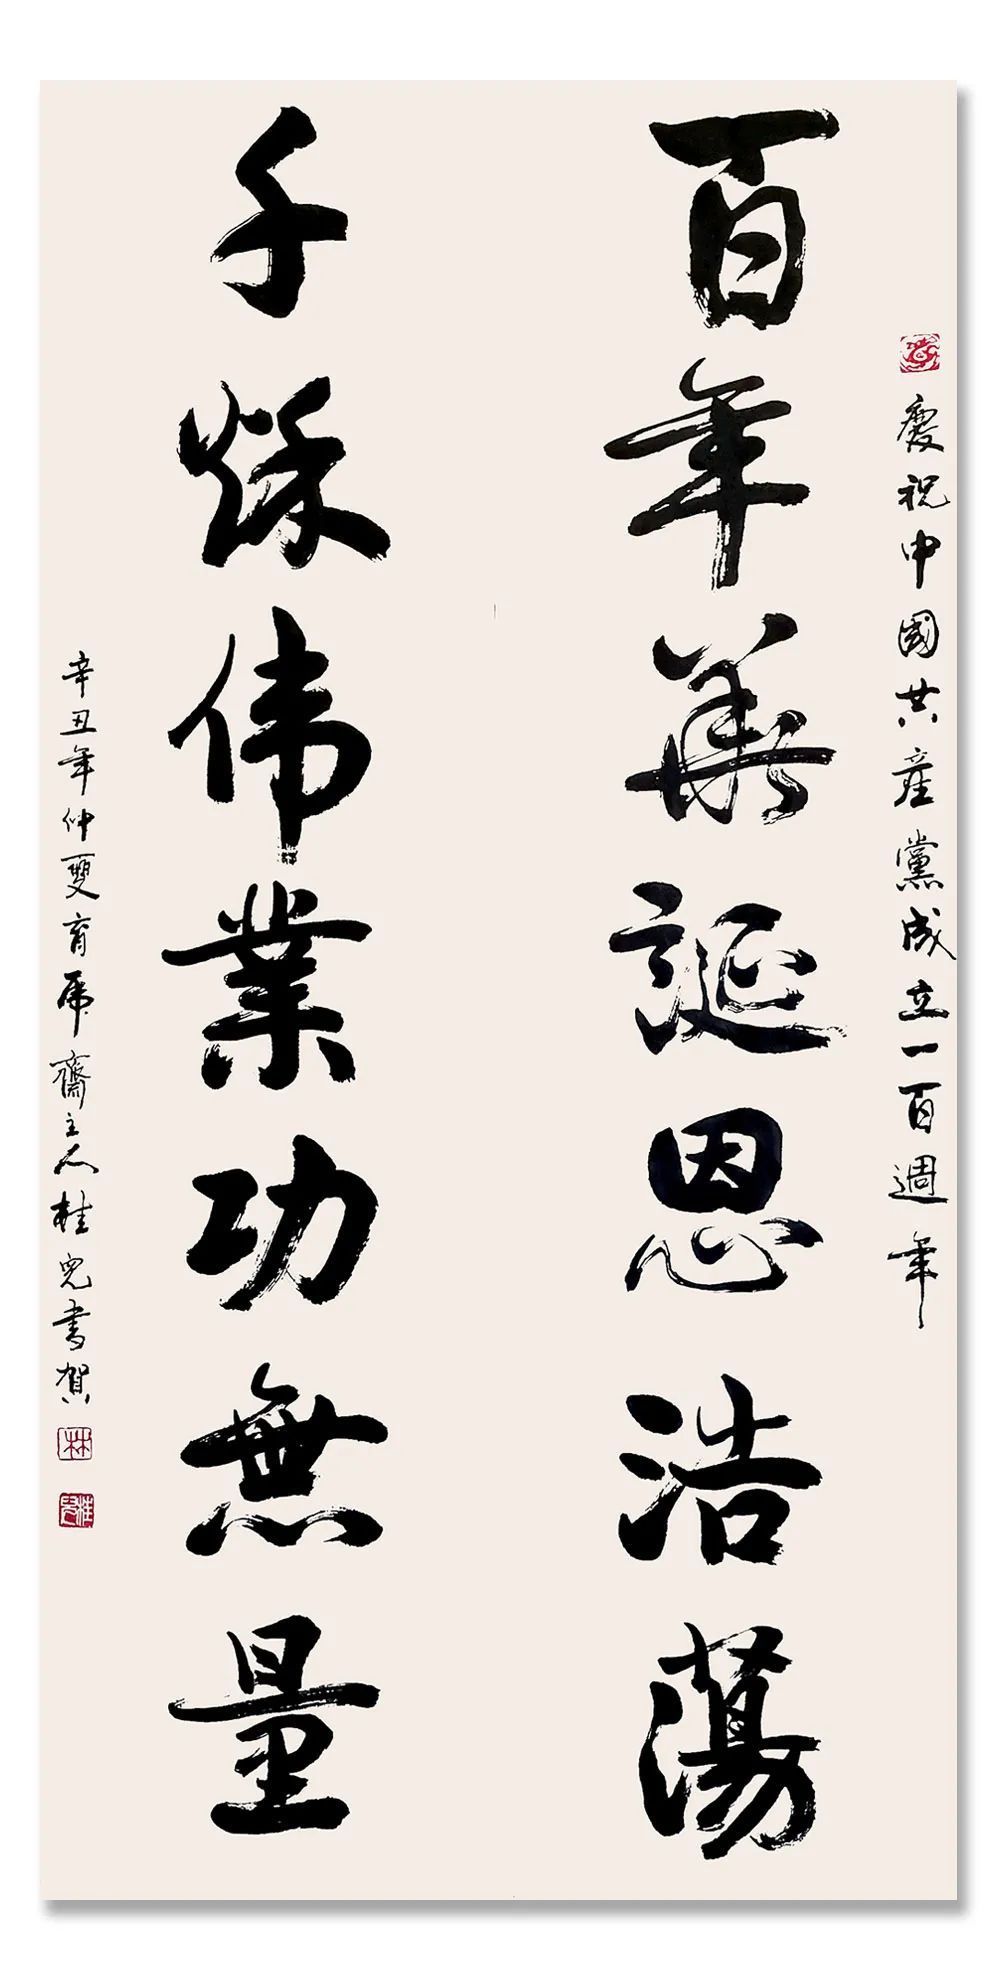 慶祝中國共產黨成立一百週年
百年華誕恩浩蕩
千秌伟業功無量
辛丑年仲夏育虎齋主人桂兒書賀
林
桂兒